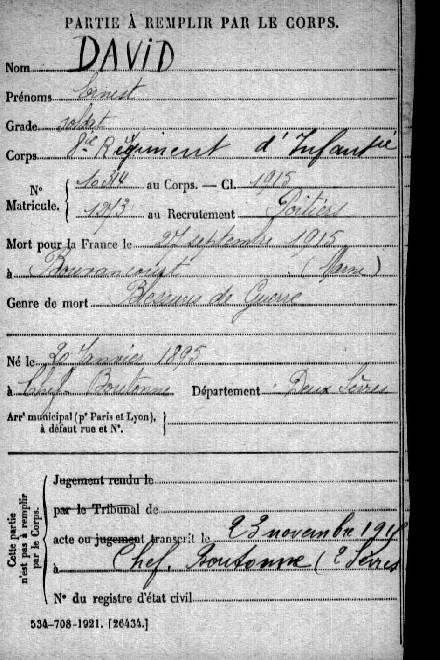 PARTIE À REMPLIR PAR LE CORPS.
Nom DAVID
Prénoms Ernest
Grade soldat
Corps Régiment d'Infantie
N° Matricule. au Corps. — Cl. 1915
1273 au Recrutement Poitiers
Mort pour la France le 27 septembre 1915
à Bouvancourt (Marne)
Genre de mort Blessures de Guerre
Né le 20 Janvier 1895
à Chef Boutonne Département Deux Sèvres
Arr^t municipal (p^r Paris et Lyon), à défaut rue et N°.
Cette partie n'est pas à remplir par le Corps.
Jugement rendu le
par le Tribunal de
acte ou jugement transcrit le 23 novembre
à Chef. Boutonne (2 Sèvres
N° du registre d'état civil
534-708-1921. [26434.]